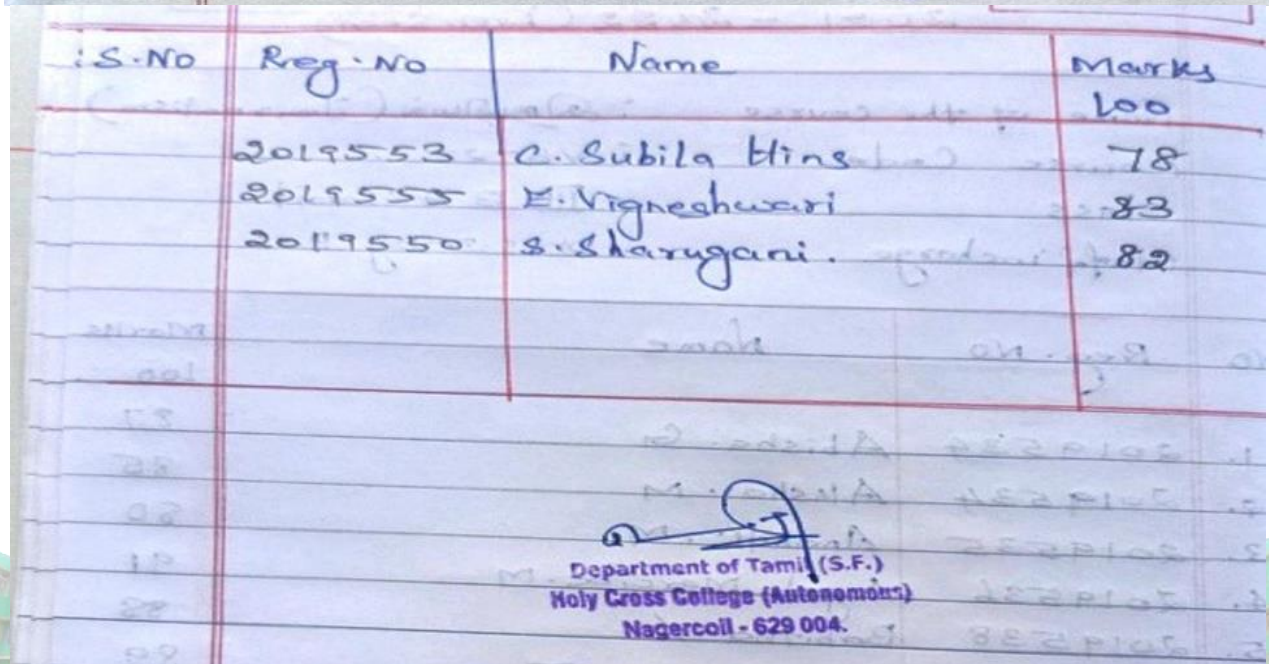 S.No Reg.No Name Marks
100
2019553 C. Subila Hins 78
2019555 E. Vigneshwari 83
2019550 S. Sharugani. 82
Department of Tamil (S.F.)
Holy Cross College (Autonomous)
Nagercoil - 629 004.